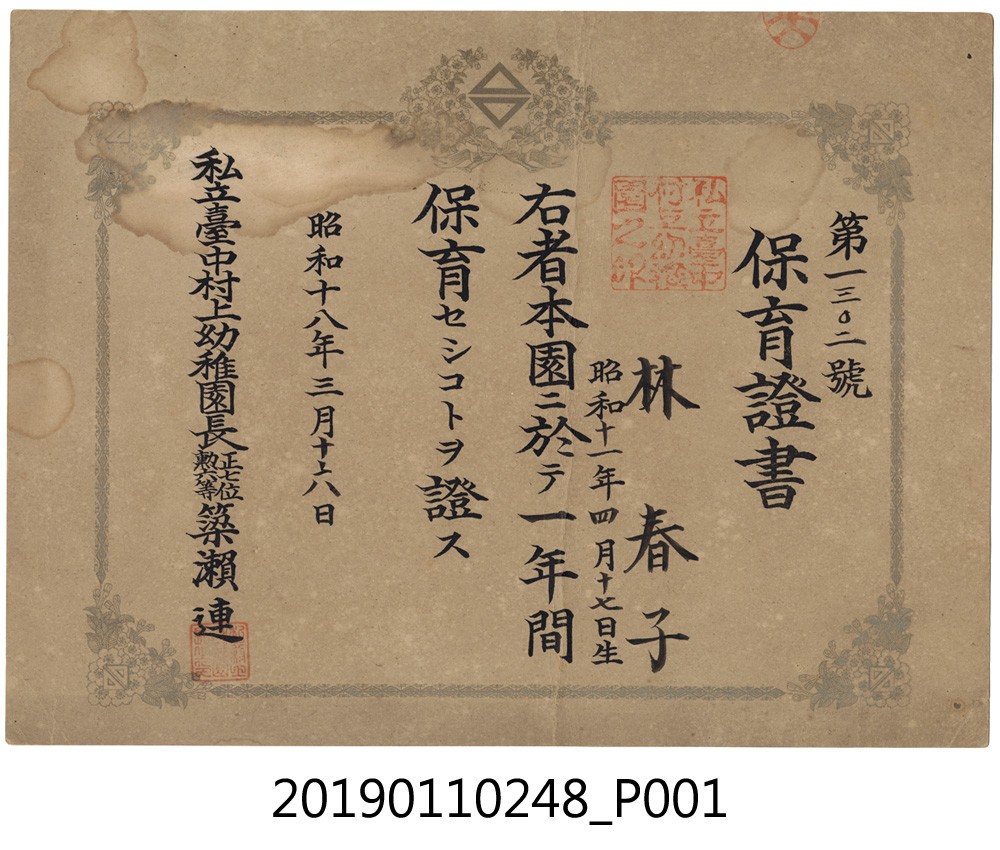 第一三〇二號
保育證書
林春子
昭和十一年四月十七日生
右者本園ニ於テ一年間
保育セシコトヲ證ス
昭和十八年三月十六八日
私立臺中村上幼稚園長正七位勲六等築瀬連
20190110248_P001